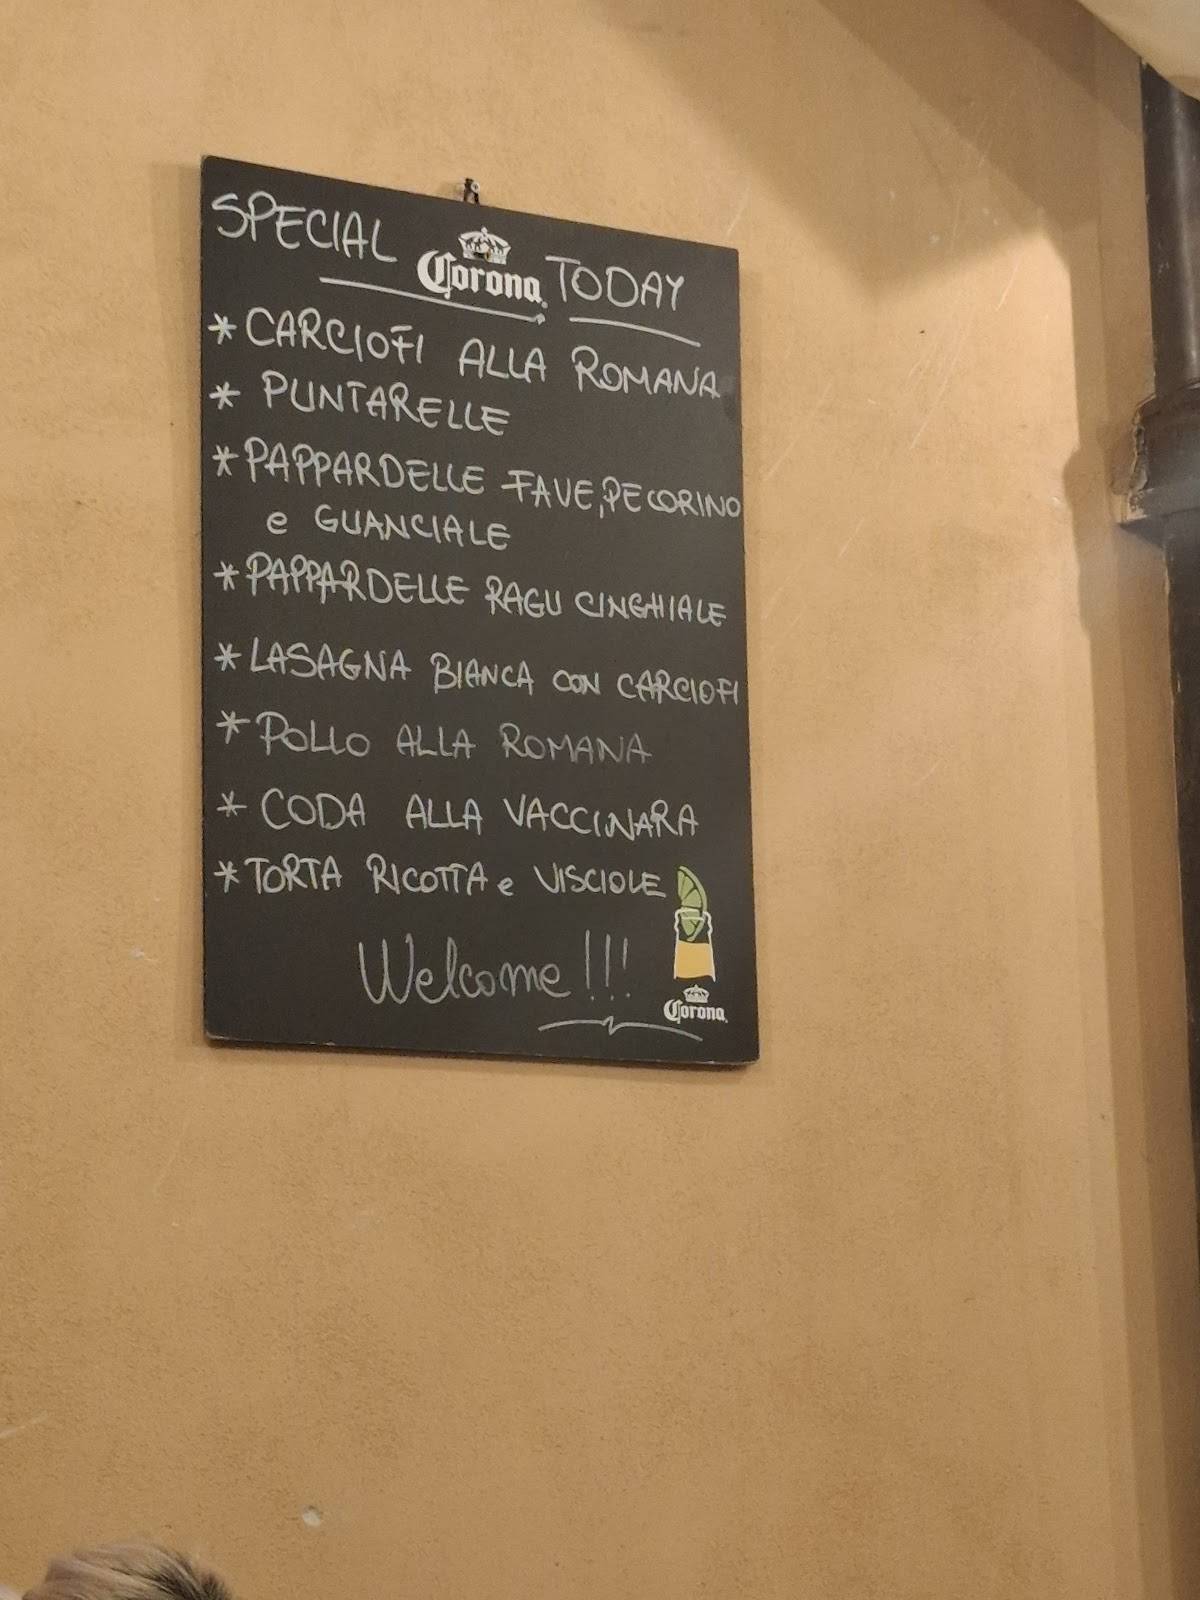 SPECIAL Corona TODAY
* CARCIOFI ALLA ROMANA
* PUNTARELLE
* PAPPARDELLE FAVE, PECORINO
e GUANCIALE
* PAPPARDELLE RAGU CINGHIALE
* LASAGNA BIANCA CON CARCIOFI
* POLLO ALLA ROMANA
* CODA ALLA VACCINARA
* TORTA RICOTTA e VISCIOLE
Welcome!!!
Corona